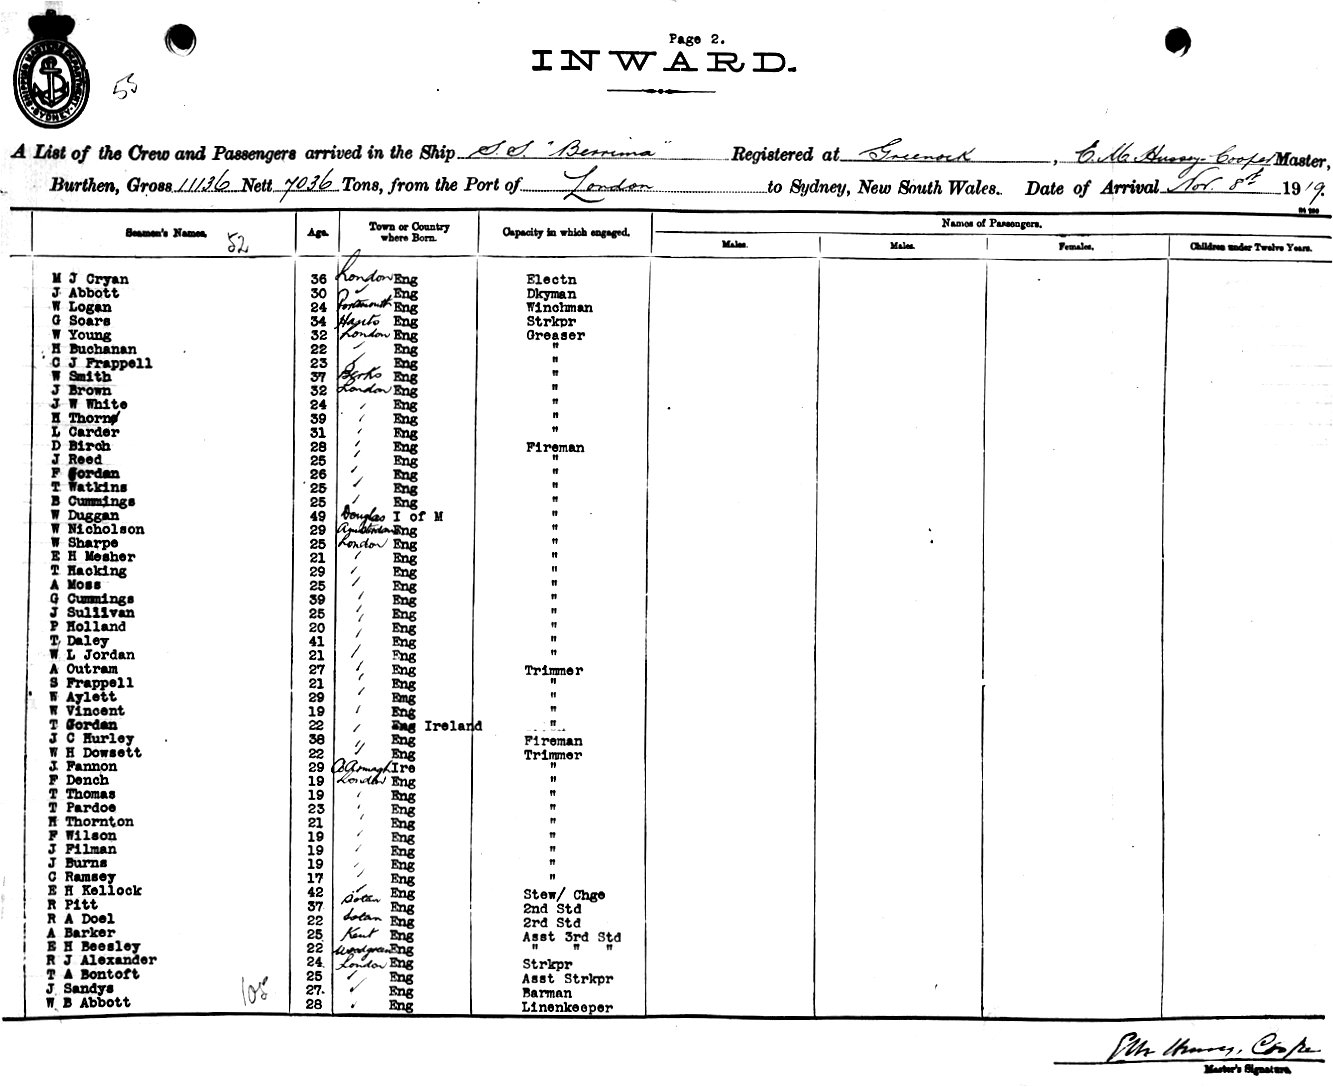 SHIPPING MASTERS DEPARTMENT
SYDNEY
53
Page 2.
INWARD.
A List of the Crew and Passengers arrived in the Ship S.S. "Berrima" Registered at Greenock, C.M. Hussey-Cooper Master,
Burthen, Gross 11136 Nett 7036 Tons, from the Port of London to Sydney, New South Wales. Date of Arrival Nov. 8th 1919.
Seamen's Names. 52 Age. Town or Country where Born. Capacity in which engaged. Names of Passengers.
Males. Males. Females. Children under Twelve Years.
M J Cryan 36 London Eng Electn
J Abbott 30 " Eng Dkyman
W Logan 24 Portsmouth Eng Winchman
G Soars 34 Hants Eng Strkpr
W Young 32 London Eng Greaser
H Buchanan 22 " Eng "
C J Frappell 23 " Eng "
W Smith 37 Berks Eng "
J Brown 32 London Eng "
J W White 24 " Eng "
H Thorn 39 " Eng "
L Carder 31 " Eng "
D Birch 28 " Eng Fireman
J Reed 25 " Eng "
F Gordan 26 " Eng "
T Watkins 25 " Eng "
B Cummings 25 " Eng "
W Duggan 49 Douglas I of M "
W Nicholson 29 Amsterdam Eng "
W Sharpe 25 London Eng "
E H Mesher 21 " Eng "
T Hacking 29 " Eng "
A Moss 25 " Eng "
G Cummings 39 " Eng "
J Sullivan 25 " Eng "
P Holland 20 " Eng "
T Daley 41 " Eng "
W L Jordan 21 " Eng "
A Outram 27 " Eng Trimmer
S Frappell 21 " Eng "
W Aylett 29 " Emg "
W Vincent 19 " Eng "
T Gordan 22 " Eng Ireland "
J C Hurley 38 " Eng Fireman
W H Dowsett 22 " Eng Trimmer
J Fannon 29 Co Armagh Ire "
F Dench 19 London Eng "
T Thomas 19 " Eng "
T Pardoe 23 " Eng "
H Thornton 21 " Eng "
F Wilson 19 " Eng "
J Filman 19 " Eng "
J Burns 19 " Eng "
C Ramsey 17 " Eng "
E H Kellock 42 " Eng Stew/ Chge
R Pitt 37 Soton Eng 2nd Std
R A Doel 22 Soton Eng 2rd Std
A Barker 25 Kent Eng Asst 3rd Std
E H Beesley 22 Woodgreen Eng " " "
R J Alexander 24 London Eng Strkpr
T A Bontoft 25 " Eng Asst Strkpr
J Sandys 27 " Eng Barman
W B Abbott 28 " Eng Linenkeeper
105
Master's Signature.